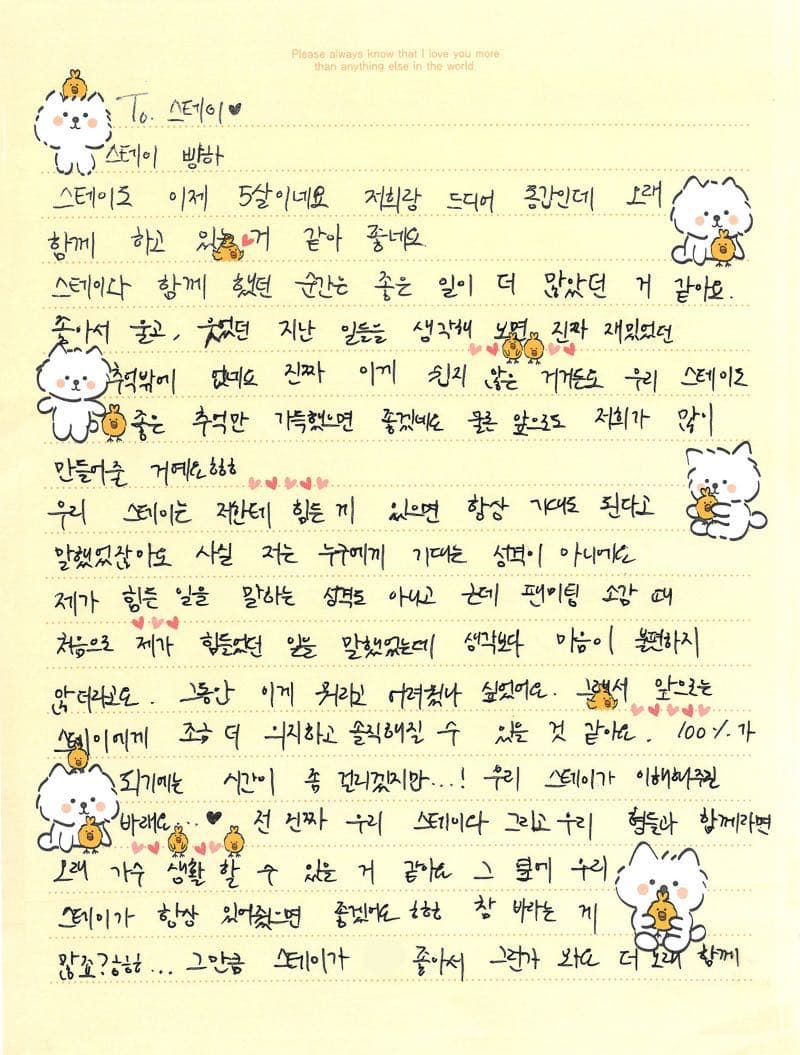 Please always know that I love you more
than anything else in the world.
To. 스테이♥
스테이 뺭하
스테이도 이제 5살이네요 저희랑 드디어 동갑인데 오래
함께 하고 있는 거 같아 좋네요
스테이와 함께 했던 순간는 좋은 일이 더 많았던 거 같아요.
좋아서 울고, 웃었던 지난 일들을 생각해 보면 진짜 재밌었던
추억밖에 없네요 진짜 이게 쉽지 않은 거거든요 우리 스테이도
좋은 추억만 가득했으면 좋겠네요 물론 앞으로도 저희가 많이
만들어줄 거예요ㅎㅎㅎ
우리 스테이는 저한테 힘든 게 있으면 항상 기대도 된다고
말했었잖아요 사실 저는 누구에게 기대는 성격이 아니에요
제가 힘든 일을 말하는 성격도 아니고 근데 팬미팅 소감 때
처음으로 제가 힘들었던 일을 말했었는데 생각보다 마음이 불편하지
않더라고요. 그동안 이게 뭐라고 어려웠나 싶었어요. 그래서 앞으로는
스테이에게 조금 더 의지하고 솔직해질 수 있을 것 같아요. 100%가
되기에는 시간이 좀 걸리겠지만...! 우리 스테이가 이해해주길
바래요...♥ 전 진짜 우리 스테이와 그리고 우리 형들과 함께라면
오래 가수 생활 할 수 있을 거 같아요 그 옆에 우리
스테이가 항상 있어줬으면 좋겠어요 ㅎㅎㅎ 참 바라는 게
많죠?ㅎㅎㅎ... 그만큼 스테이가 좋아서 그런가 봐요 더 오래 함께